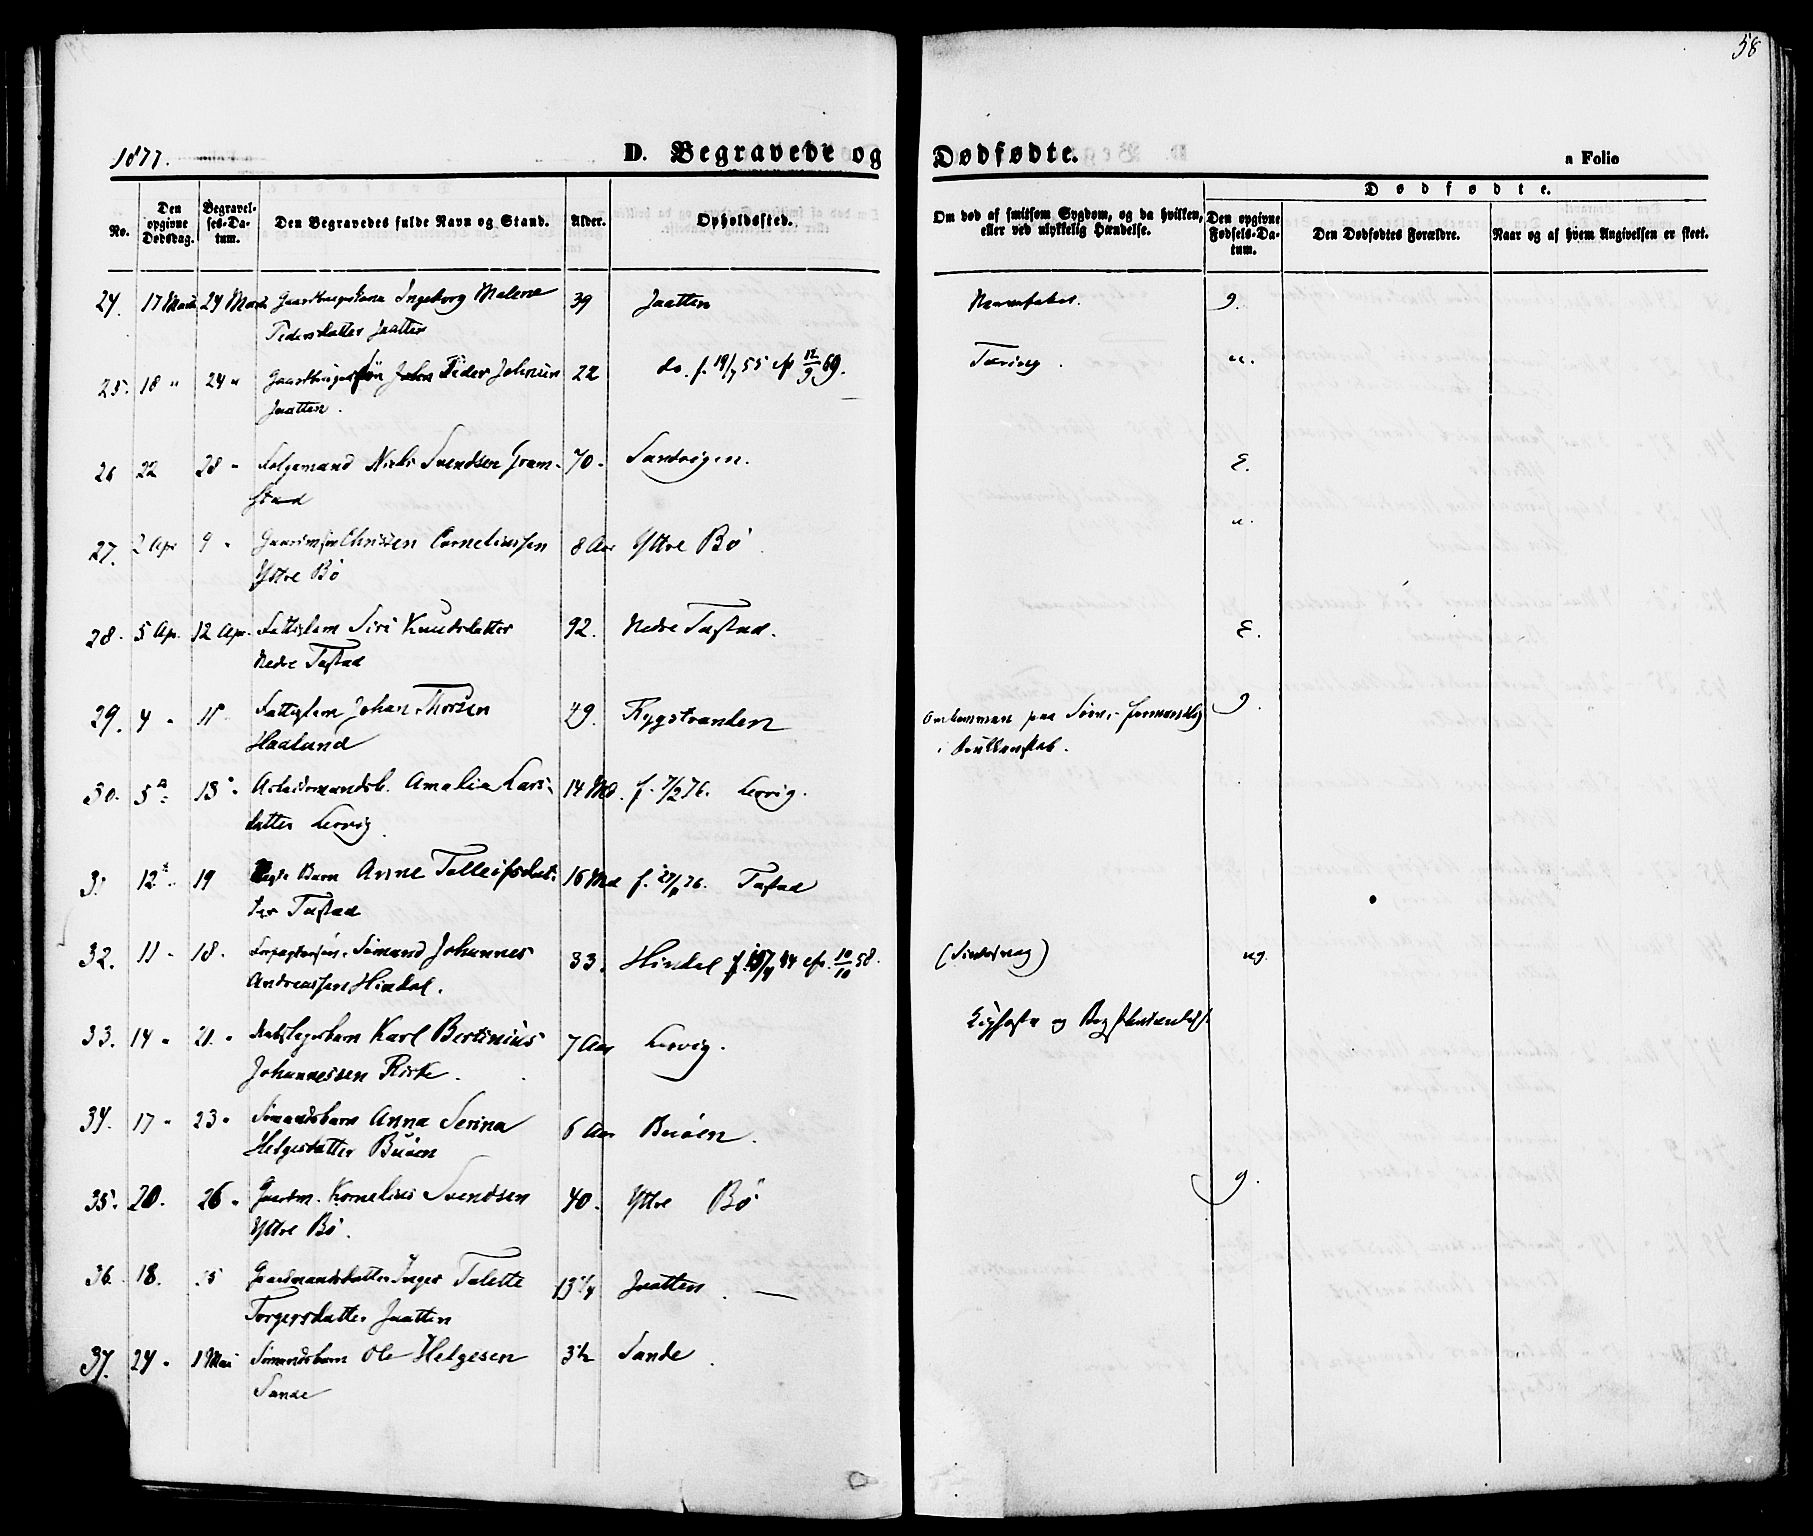 58
1877.
D. Begravede og Dødfødte.
a Folio
No.
Den opgivne Dødsdag.
Begravelses-Datum.
Den Begravedes fulde Navn og Stand.
Alder.
Opholdssted.
Om død af smitsom Sygdom, og da hvilken, eller ved ulykkelig Hændelse.
Dødfødte.
Den opgivne Fødsels-Datum.
Den Dødfødtes Forældre.
Naar og af hvem Angivelsen er skeet.
24. 17 Marts 24 Marts Gaardbrugerkone Ingeborg Malene 39 Jaatten g.
Pedersdatter Jaatten
25. 18 " 24 " Gaardbrugersøn Peder Johnsen 22 do. f. 19/7 55 cfr 12/9 69. Tæring. u.
Jaatten.
26 22 28 " Folgemand Niels Svendsen Gram- 70. Sandvigen. E.
stad
27. 2 Apr 9 " Christen Corneliussen 8 Aar Yttre Bø u.
Yttre Bø
28. 5 Ap. 12 Ap. Fattiglem Siri Knudsdatter 92. Nedre Tastad. E.
Nedre Tastad
29. 4 " 11 Fattiglem Johan Thorsen 49. Rygstranden Omkommen paa Søen, formentlig g.
Haaland i Drukkenskab.
30. 5 13 " Arbeidsmandsb. Amalia Lars- 14 Md. f. 7/2 76. Lervig.
datter Lervig
31 12 19 Barn Anne Tolleifsdat- 16 Md f. 76. Tastad
ter Tastad
32. 11 " 18. Sømand Johannes 33. Hindal f. 44 cfr. 10/10 58. ug.
Andreassen Hindal.
33. 14 " 21. " Karl Bertinius 7 Aar Lervig. Kighoste og
Johannessen Riske.
34. 17 " 23 " Sømandsbarn Anna Serina 6 Aar Buøen.
Helgesdatter Buøen
35. 20. 26 " Gaardm. Kornelius Svendsen 40. Yttre Bø g.
Yttre Bø.
36. 18. 25 Gaardmandsdatter Inger Talette 13 1/4 Jaatten. —
Torgersdatter Jaatten
37. 24 " 1 Mai Sømandsbarn Ole Helgesen 3 1/2 Sande
Sande